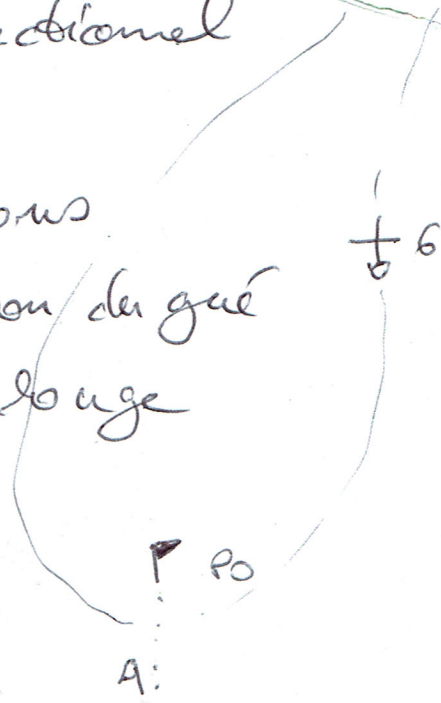 ctionnel
ons
6
on du gué
longe
PO
A: